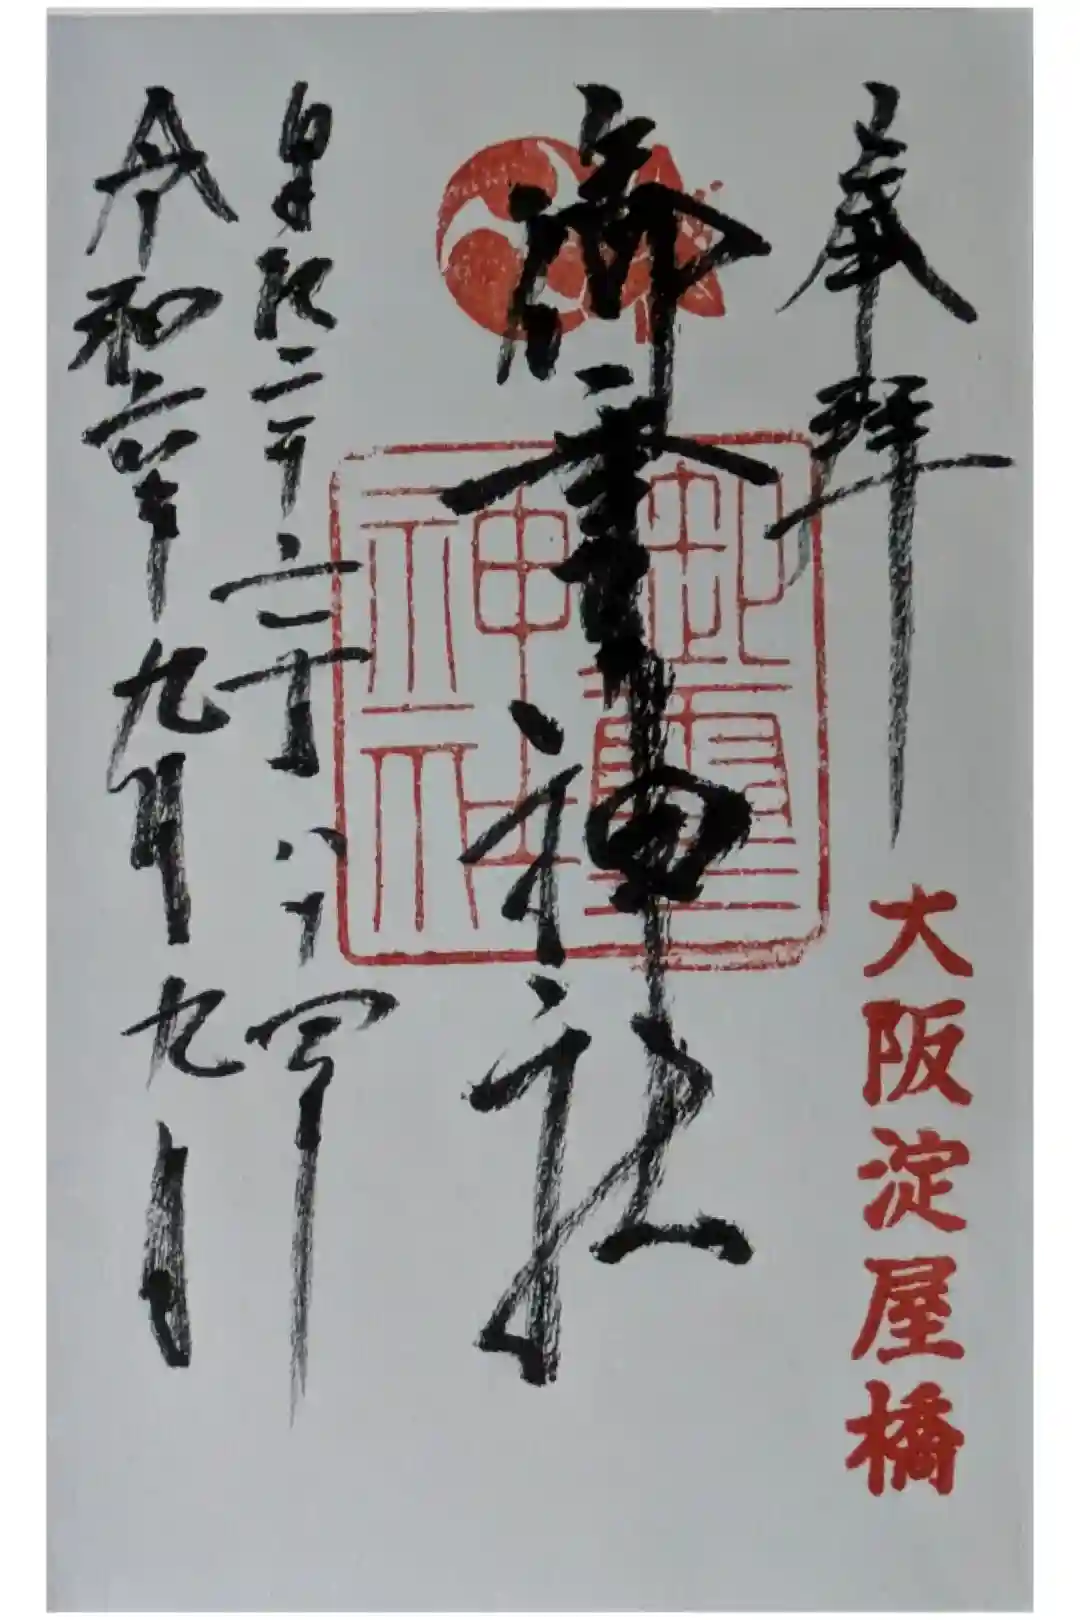 奉拝
大阪淀屋橋
御霊神社
御霊神社
皇紀二千六百八十四年
令和六年九月九日